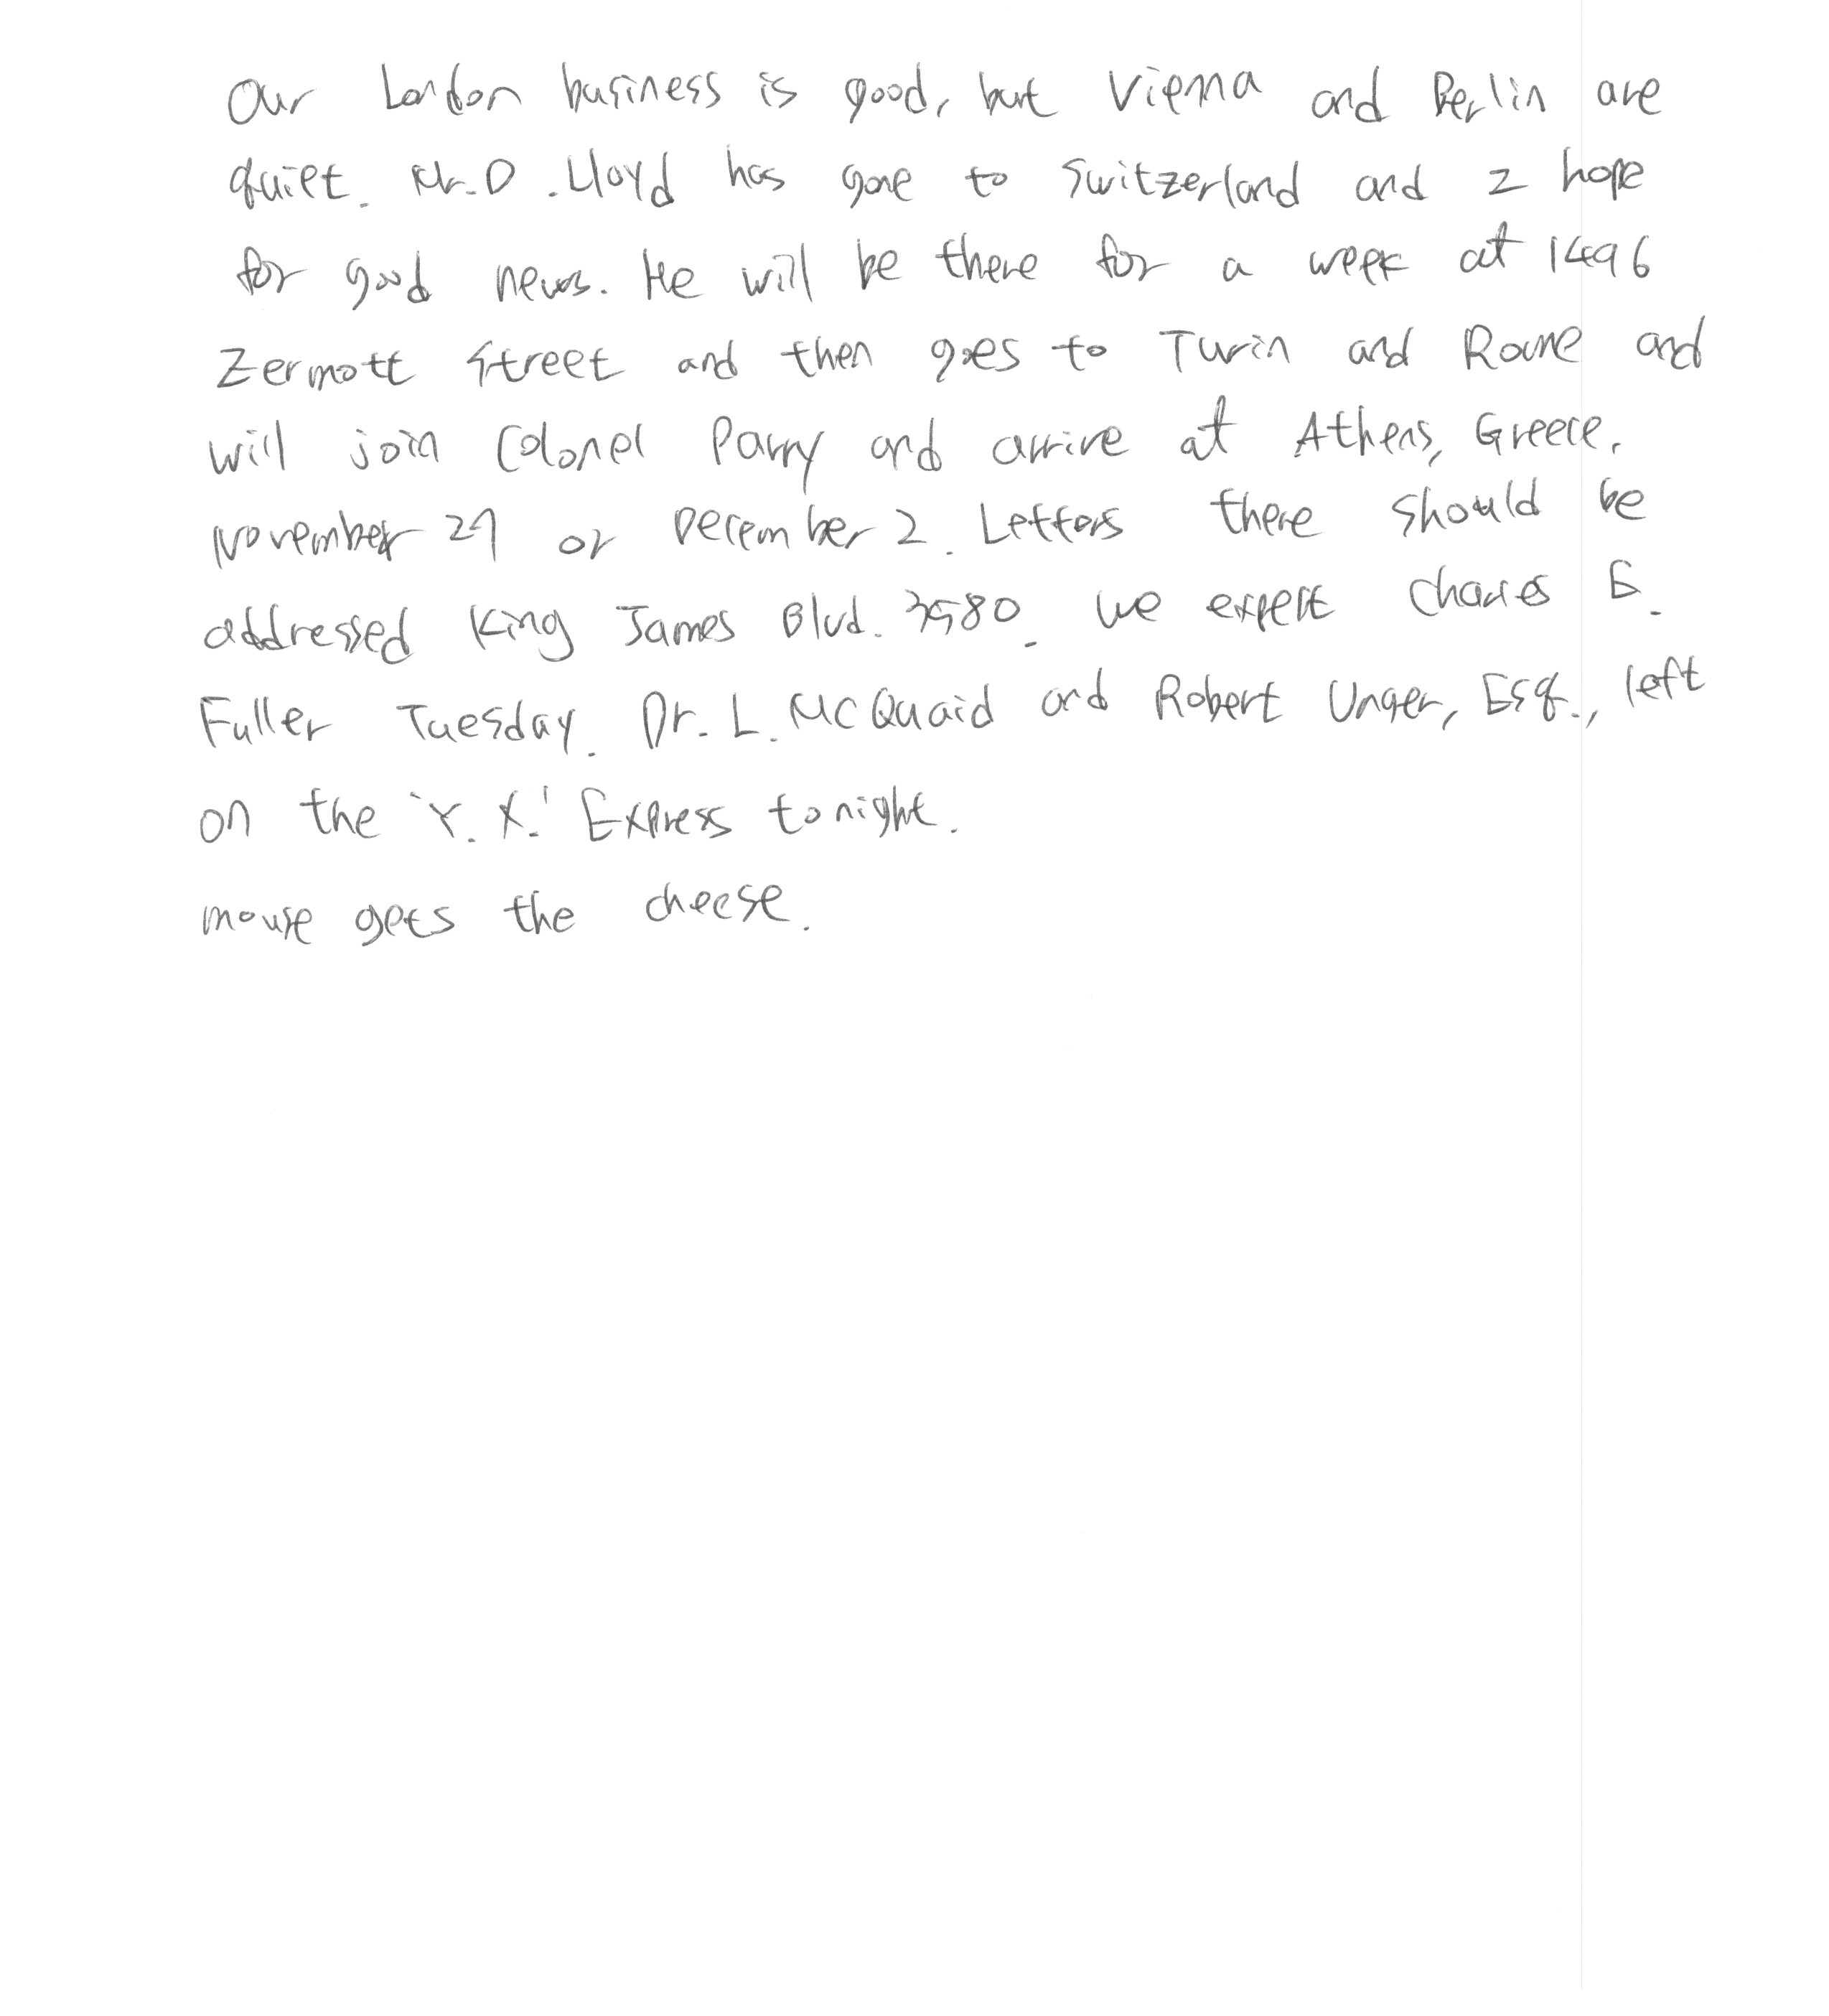 Our London business is good, but Vienna and Berlin are
quiet. Mr. D. Lloyd has gone to Switzerland and I hope
for good news. He will be there for a week at 1496
Zermott Street and then goes to Turin and Rome and
will join Colonel Parry and arrive at Athens, Greece,
November 29 or December 2. Letters there should be
addressed King James Blvd. 3580. We expect Charles E.
Fuller Tuesday. Dr. L. McQuaid and Robert Unger, Esq., left
on the 'Y. X.' Express tonight.
mouse gets the cheese.